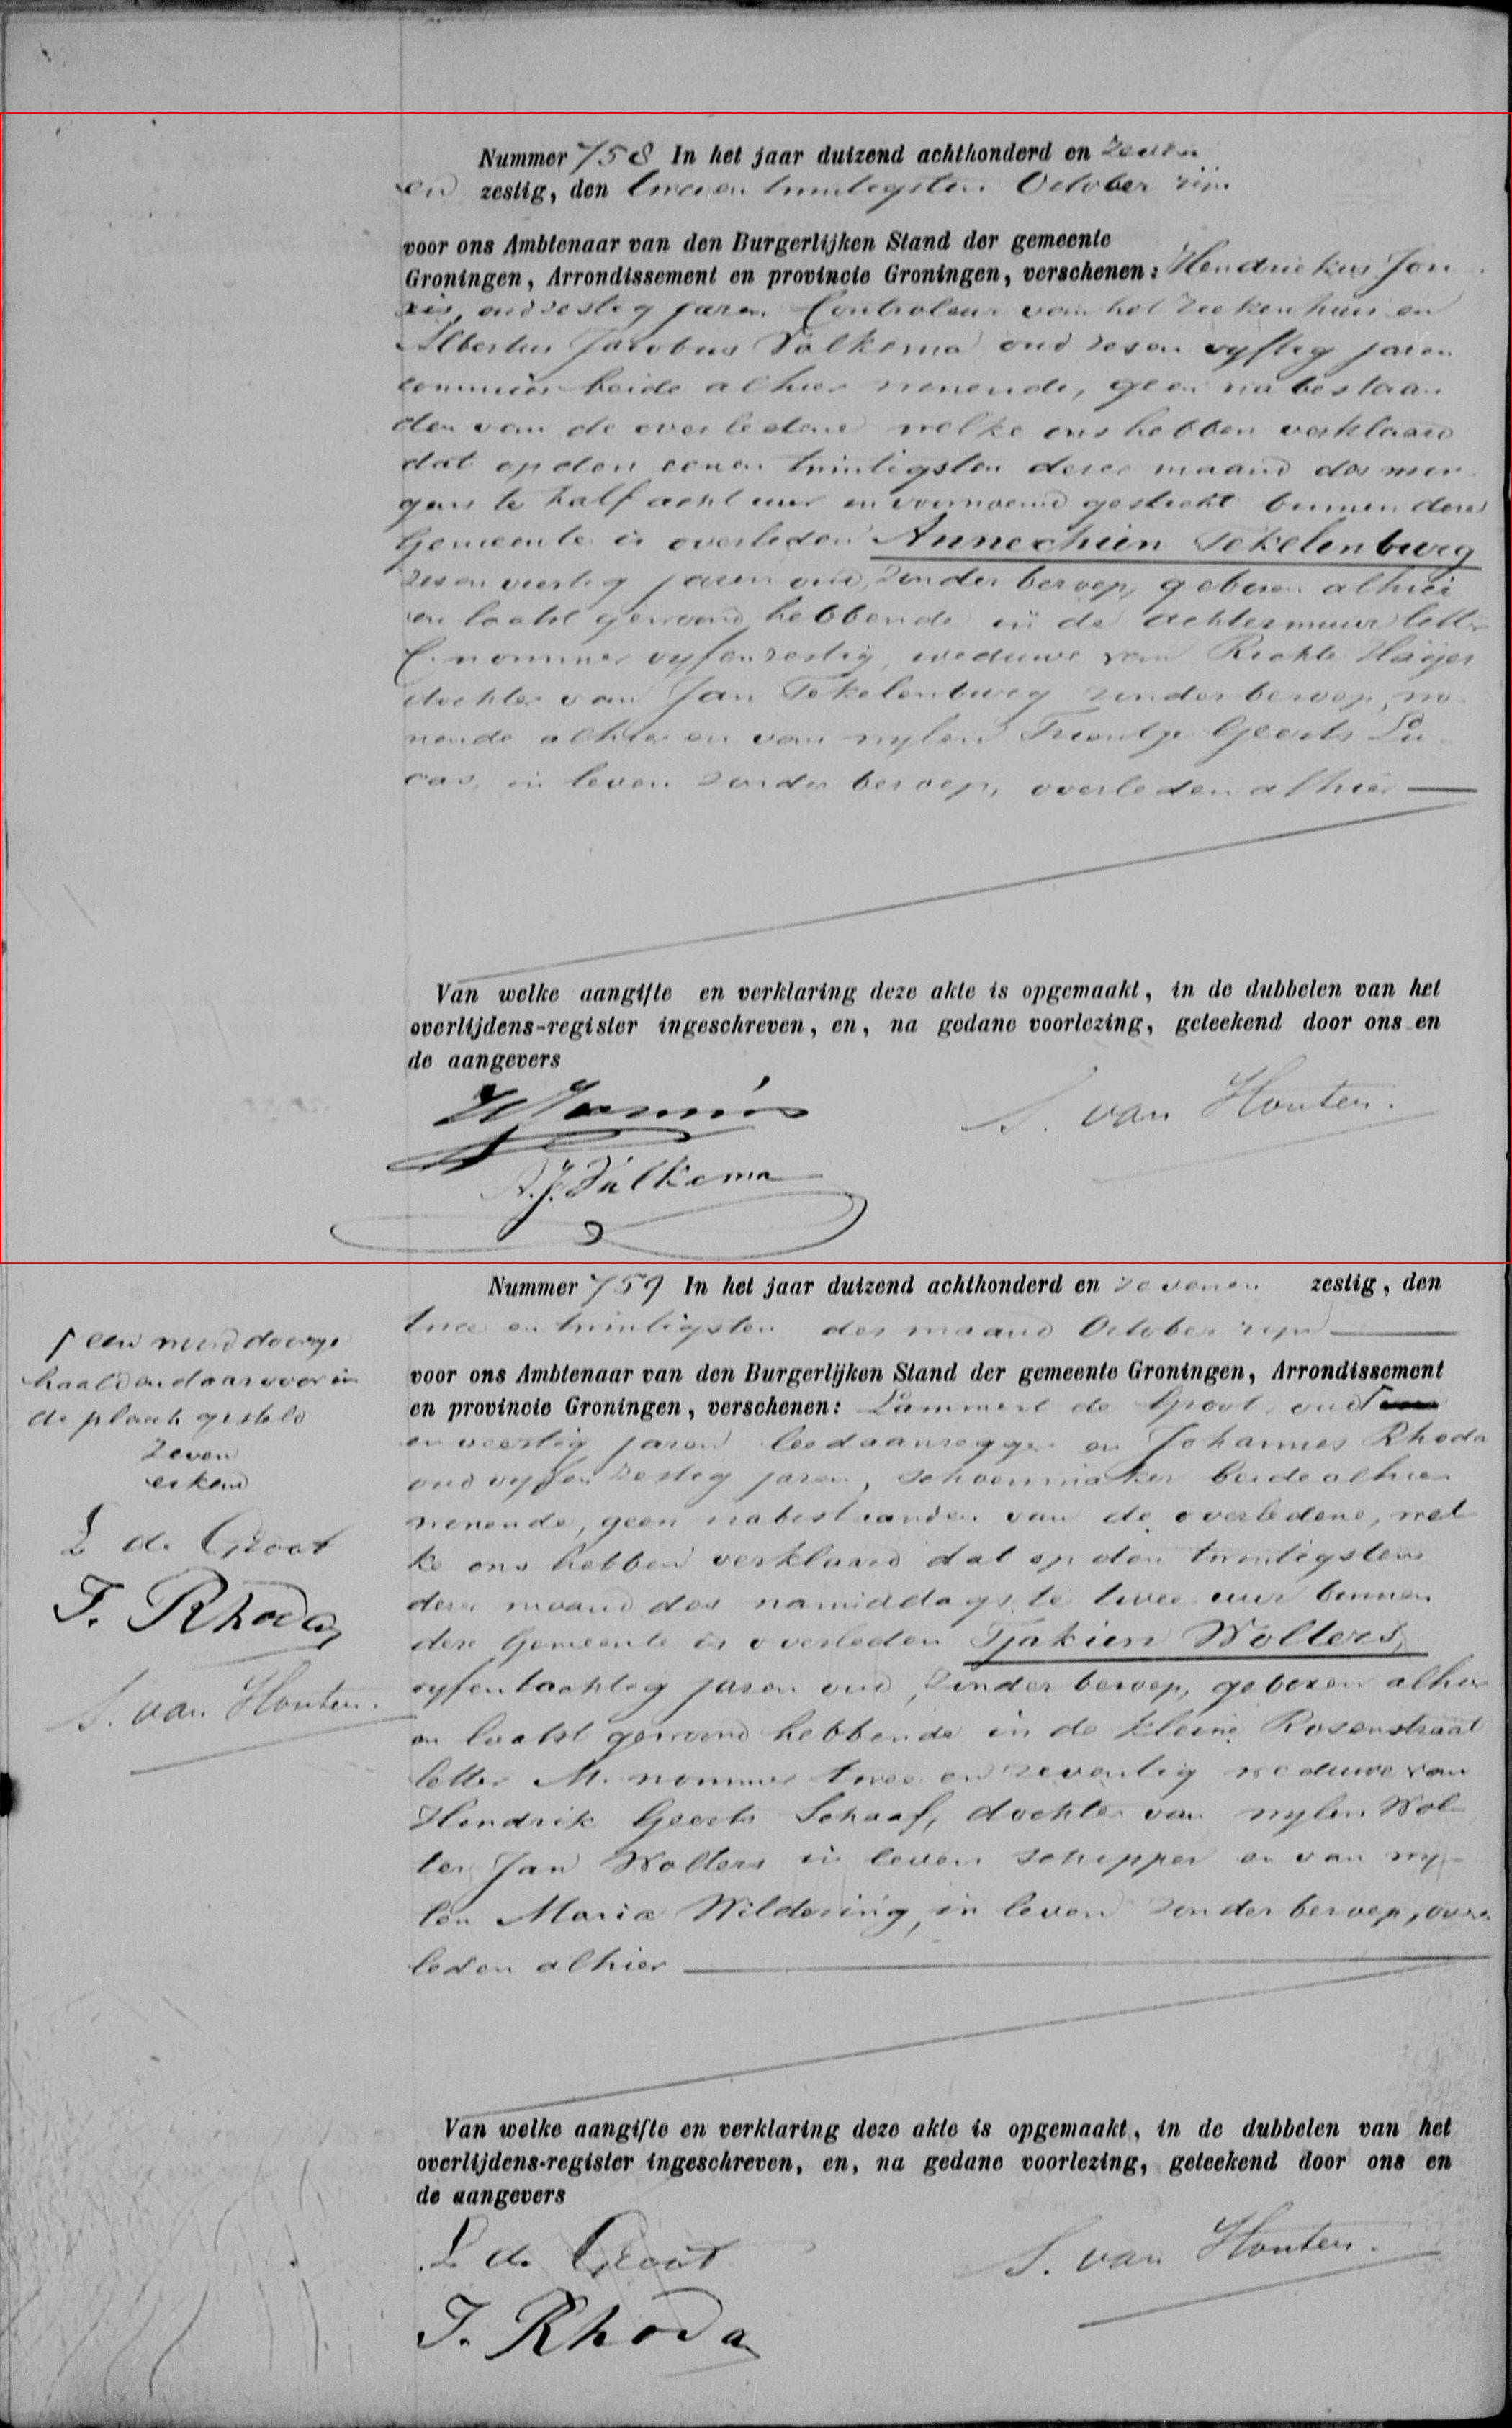 Nummer 758 In het jaar duizend achthonderd en zeven
en zestig, den twee en twintigsten October zijn
voor ons Ambtenaar van den Burgerlijken Stand der gemeente
Groningen, Arrondissement en provincie Groningen, verschenen: Hendriekus Jon
xis, oud zestig jaren Controleur van het ziekenhuis en
Albertus Jacobus Valkema oud zes en vyftig jaren
commies beide alhier wonende, geen nabestaan
den van de overledene welke ons hebben verklaard
dat op den eenen twintigsten dezer maand des mor
gens te half acht uur in voornoemd gesticht binnen deze
Gemeente is overleden Annechien Tekelenburg
zes en veertig jaren oud, zonder beroep, geboren alhier
en laatst gewoond hebbende in de Achtermuur letter
C. nommer vyfenzestig, weduwe van Richte Häijer
dochter van Jan Tekelenburg zonder beroep, wo
nende alhier en van wylen Trientje Geerts Lu
cas, in leven zonder beroep, overleden alhier
Van welke aangifte en verklaring deze akte is opgemaakt, in de dubbelen van het
overlijdens-register ingeschreven, en, na gedane voorlezing, geteekend door ons en
de aangevers
S. van Houten.
A.J. Valkema
Nummer 759 In het jaar duizend achthonderd en zeven en zestig, den
twee en twintigsten der maand October zijn
voor ons Ambtenaar van den Burgerlijken Stand der gemeente Groningen, Arrondissement
en provincie Groningen, verschenen: Lammert de Groot, oud
en veertig jaren leedaanzegger en Johannes Rhoda
oud vyf en zestig jaren, schoenmaker beide alhier
wonende, geen nabestaanden van de overledene, wel
ke ons hebben verklaard dat op den twintigsten
dezer maand des namiddags te twee uur binnen
deze Gemeente is overleden Tjakien Wolters,
vyfentachtig jaren oud, zonder beroep, geboren alhier
en laatst gewoond hebbende in de kleine Rozenstraat
letter M. nommer twee en zeventig weduwe van
Hendrik Geerts Schaaf, dochter van wylen Wol
ter Jan Wolters in leven schipper en van wy
len Maria Wildering, in leven zonder beroep, over
leden alhier
een woord doorge
haald en daar voor in
de plaats gesteld
zeven
erkend
L de Groot
J. Rhoda
S. van Houten.
Van welke aangifte en verklaring deze akte is opgemaakt, in de dubbelen van het
overlijdens-register ingeschreven, en, na gedane voorlezing, geteekend door ons en
de aangevers
L de Groot
S. van Houten.
J. Rhoda